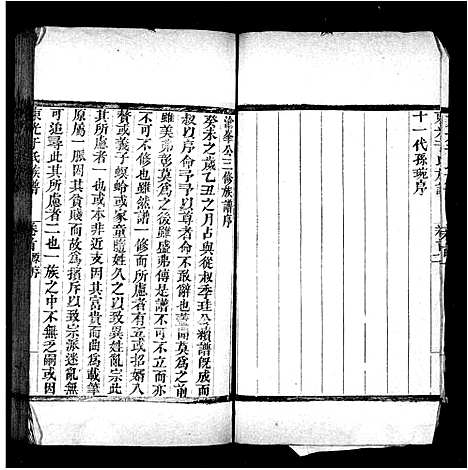 十一代孫琬序
滄峯公三修族譜序
癸未之歲乙丑之月占與從叔季珪公續譜既成而
叔以序命予予以不敢辭也予聞莫為之前
雖美弗彰莫為之後雖盛弗傳是譜不可不立而亦
不可不修也雖然譜一修而所慮者有二或以招婿
贅或義子螟蛉或家童隨姓久之以致異姓亂宗此
其所慮者一也或本非近支因其富貴而曲為載筆
原屬一脈因其貧賤而故為擯斥以致宗派迷亂無
可追尋此其所慮者二也一族之中不無乏嗣或以
東光于氏族譜
卷首 源序